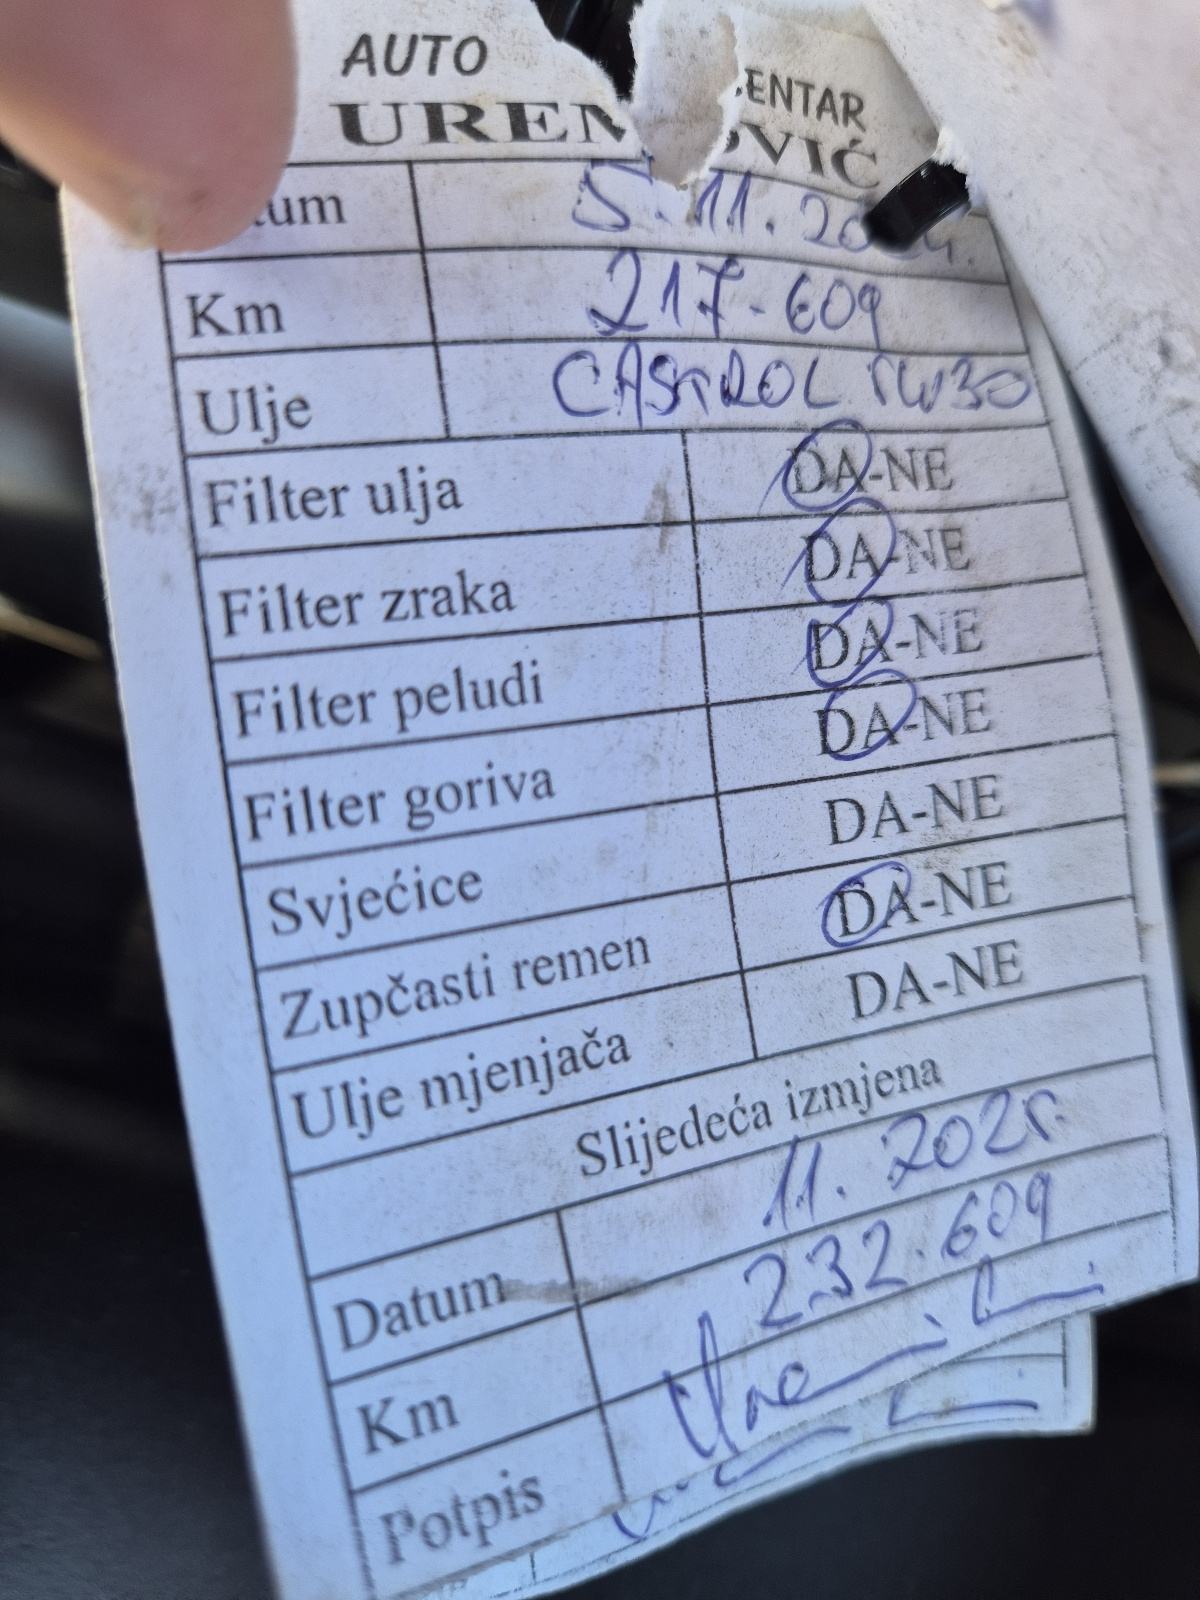 AUTO ENTAR
UREN OVIĆ
tum 5.11.2024.
Km 217-609
Ulje CASTROL 5W30
Filter ulja DA-NE
Filter zraka DA-NE
Filter peludi DA-NE
Filter goriva DA-NE
Svjećice DA-NE
Zupčasti remen DA-NE
Ulje mjenjača DA-NE
Slijedeća izmjena
Datum 11. 2025.
Km 232.609
Potpis